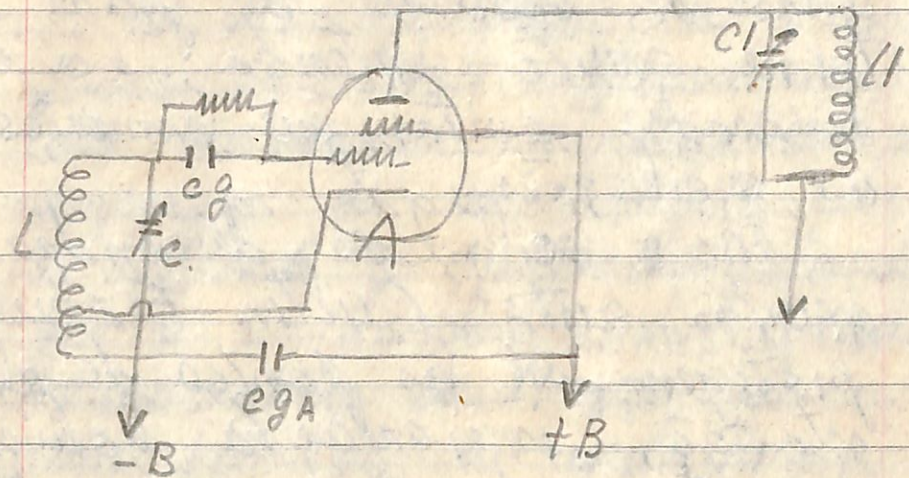 C1
L1
cg
L
C
A
cgA
-B
+B